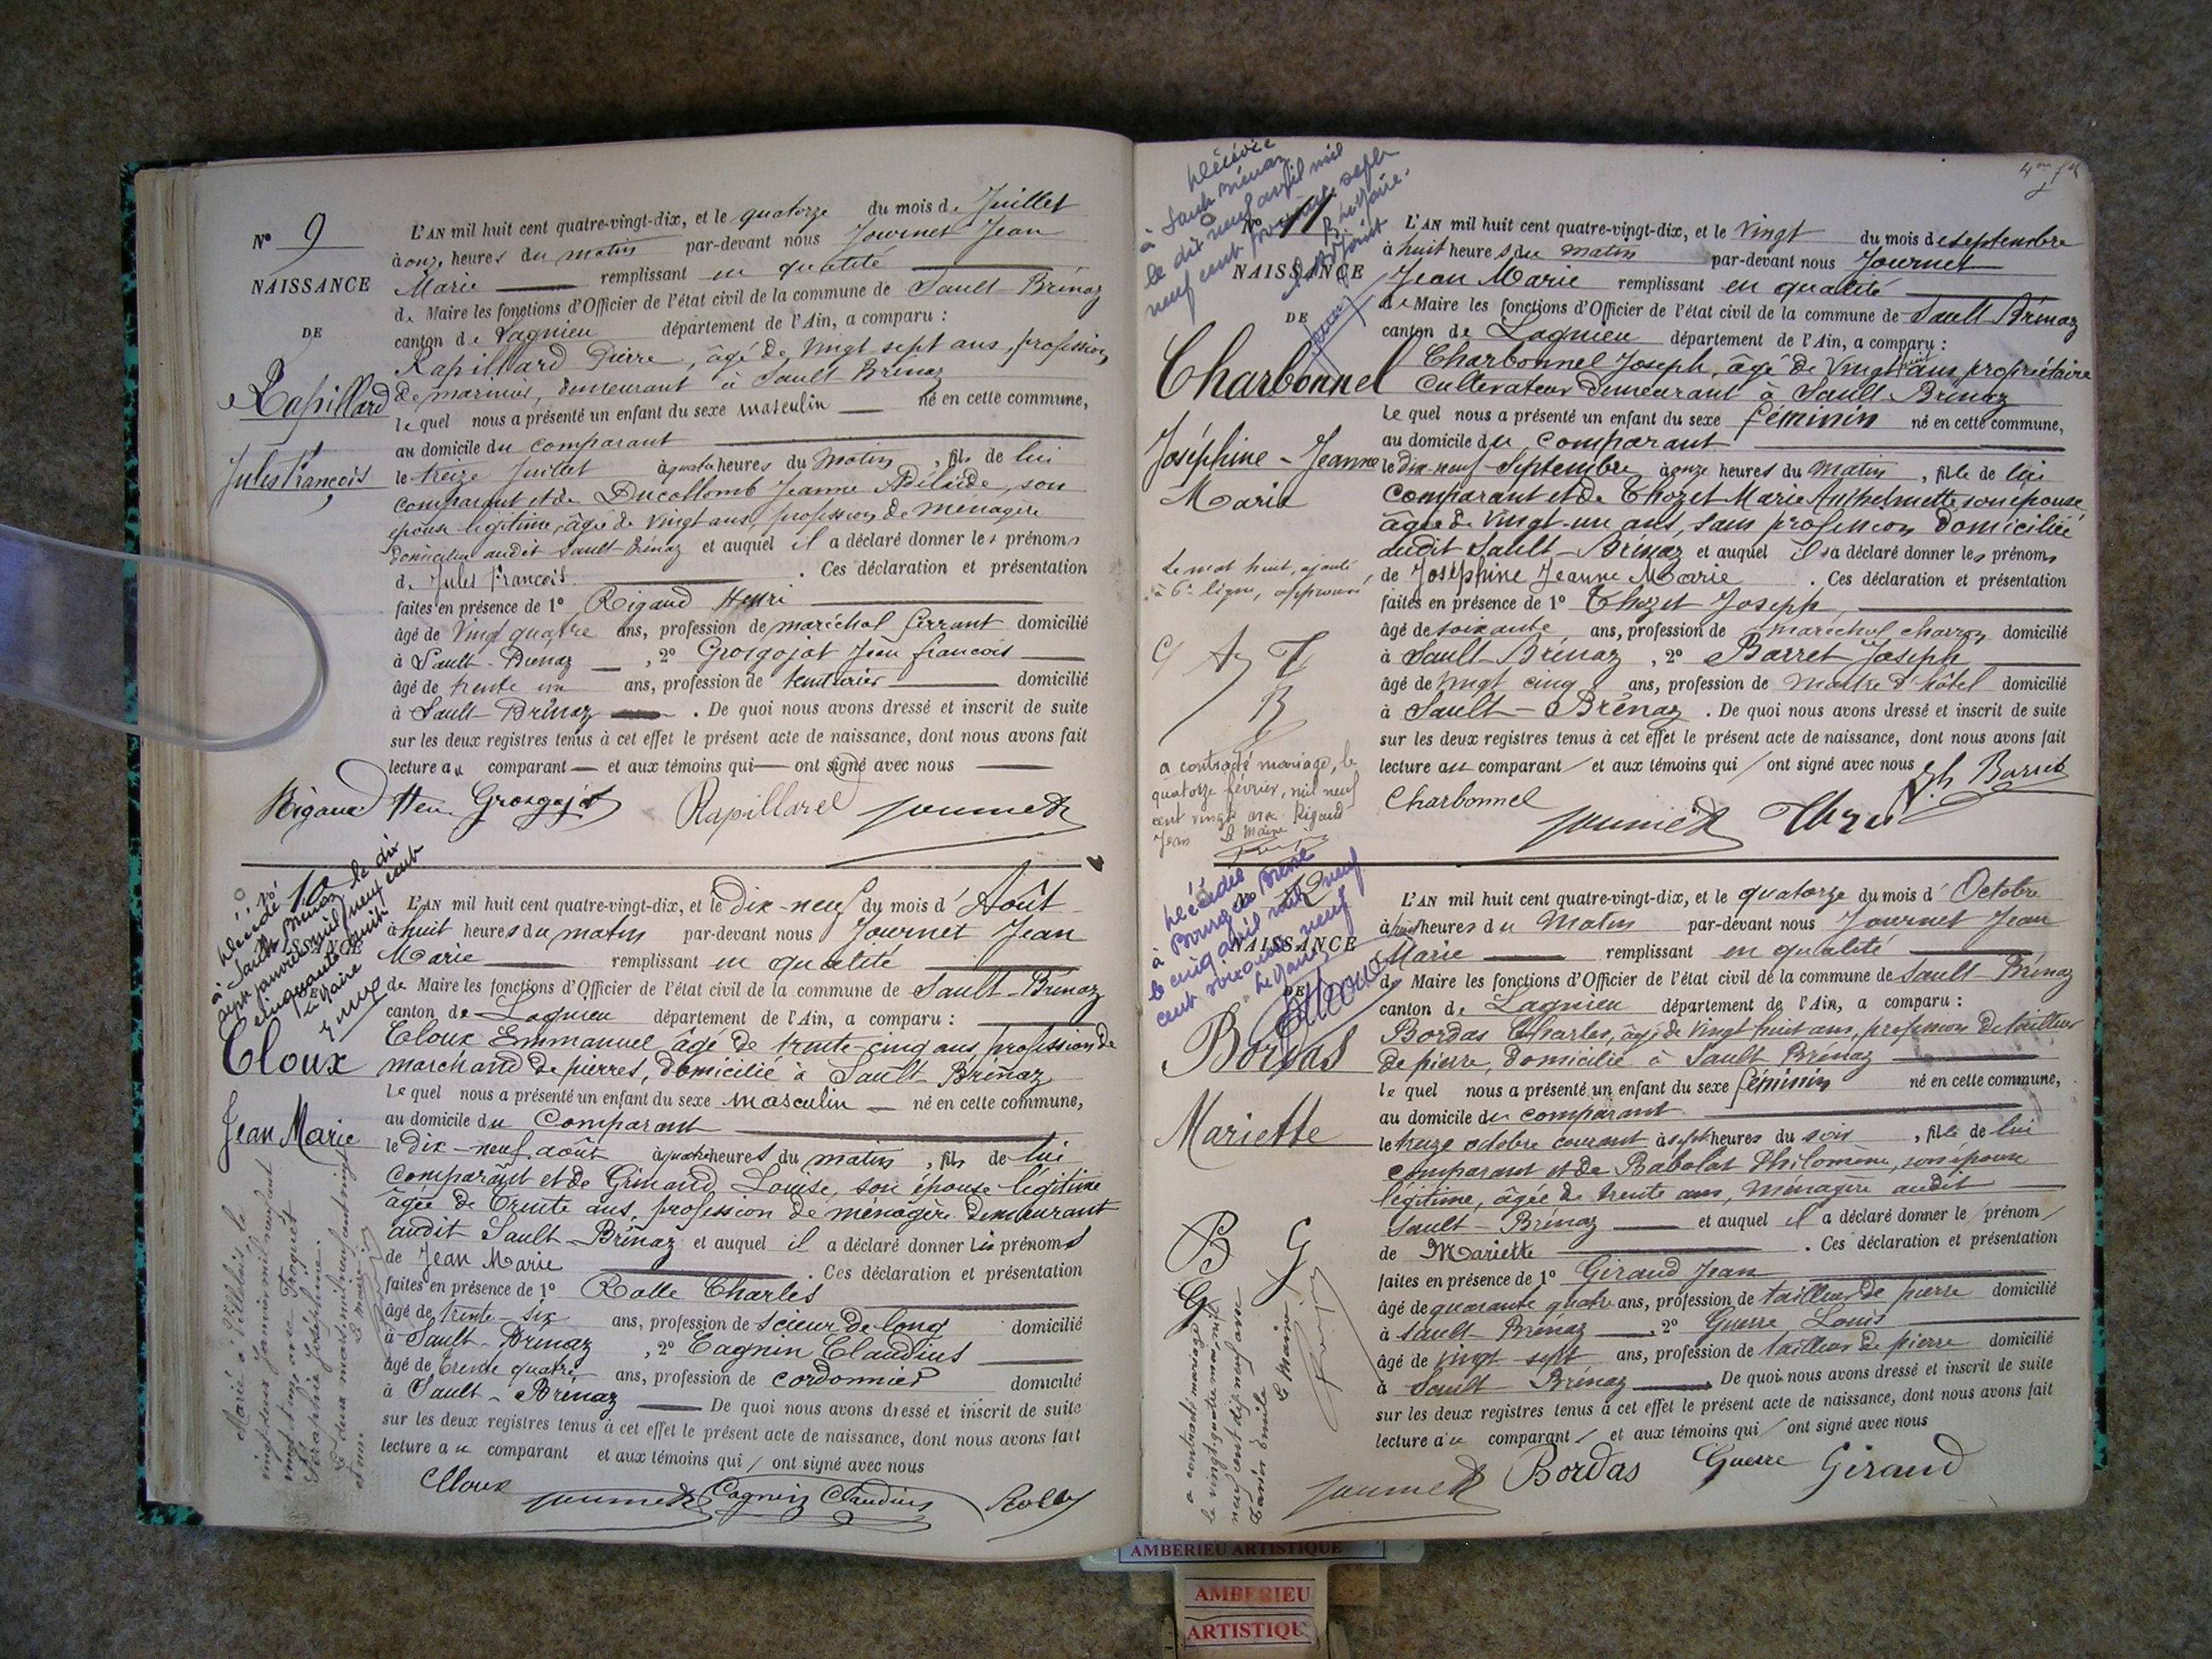 N° 9
NAISSANCE
DE
Rapillard
Jules François
L'AN mil huit cent quatre-vingt-dix, et le quatorze du mois de Juillet
à onze heures du matin par-devant nous Journet Jean
Marie remplissant en qualité
de Maire les fonctions d'Officier de l'état civil de la commune de Sault-Brénaz
canton de Lagnieu département de l'Ain, a comparu :
Rapillard Pierre, âgé de vingt sept ans, profession
de marinier, demeurant à Sault Brénaz
le quel nous a présenté un enfant du sexe masculin né en cette commune,
au domicile du comparant
le treize Juillet à quatre heures du matin, fils de lui
comparant et de Ducollomb Jeanne Adélaïde, son
épouse légitime, âgée de vingt ans, profession de ménagère
domiciliée audit Sault Brénaz et auquel il a déclaré donner les prénoms
de Jules François. Ces déclaration et présentation
faites en présence de 1° Rigaud Henri
âgé de vingt quatre ans, profession de maréchal ferrant domicilié
à Sault-Brénaz, 2° Grosgojat Jean françois
âgé de trente un ans, profession de teinturier domicilié
à Sault-Brénaz. De quoi nous avons dressé et inscrit de suite
sur les deux registres tenus à cet effet le présent acte de naissance, dont nous avons fait
lecture au comparant et aux témoins qui ont signé avec nous
Rigaud Henri Grosgojat Rapillard Journet
N° 10
Décédé
à Sault Brénaz le dix
sept janvier mil neuf cent
cinquante huit
Le Maire
NAISSANCE
DE
Cloux
Jean Marie
Marié à Villebois le
vingt-deux Janvier mil neuf cent
vingt
Séraphie Joséphine.
Le deux mars mil neuf cent vingt
et un.
Le maire
L'AN mil huit cent quatre-vingt-dix, et le Dix-neuf du mois d'Août
à huit heures du matin par-devant nous Journet Jean
Marie remplissant en qualité
de Maire les fonctions d'Officier de l'état civil de la commune de Sault-Brénaz
canton de Lagnieu département de l'Ain, a comparu :
Cloux Emmanuel âgé de trente-cinq ans, profession de
marchand de pierres, domicilié à Sault-Brénaz
le quel nous a présenté un enfant du sexe masculin né en cette commune,
au domicile du Comparant
le dix-neuf août à quatre heures du matin, fils de lui
comparant et de Grinand Louise, son épouse légitime
âgée de trente ans, profession de ménagère demeurant
audit Sault-Brénaz et auquel il a déclaré donner les prénoms
de Jean Marie. Ces déclaration et présentation
faites en présence de 1° Rolle Charles
âgé de trente-six ans, profession de scieur de long domicilié
à Sault-Brénaz, 2° Cagnin Claudius
âgé de trente quatre ans, profession de cordonnier domicilié
à Sault-Brénaz De quoi nous avons dressé et inscrit de suite
sur les deux registres tenus à cet effet le présent acte de naissance, dont nous avons fait
lecture au comparant et aux témoins qui / ont signé avec nous
Cloux Journet Cagnin Claudius Rolle
N° 11
Décédée
à Sault Brénaz
le dix neuf avril mil
neuf cent soixante sept
Le Maire.
NAISSANCE
DE
Charbonnel
Joséphine-Jeanne
Marie
Le mot huit, ajouté
à 6e ligne, approuvé
a contracté mariage, le
quatorze février, mil neuf
cent vingt avec Rigaud
Jean Le Maire
L'AN mil huit cent quatre-vingt-dix, et le Vingt du mois de septembre
à huit heures du matin par-devant nous Journet
Jean Marie remplissant en qualité
de Maire les fonctions d'Officier de l'état civil de la commune de Sault-Brénaz
canton de Lagnieu département de l'Ain, a comparu :
Charbonnel Joseph, âgé de Vingt huit ans, propriétaire
cultivateur demeurant à Sault-Brénaz
le quel nous a présenté un enfant du sexe féminin né en cette commune,
au domicile du comparant
le dix-neuf Septembre à onze heures du matin, fille de lui
comparant et de Thozet Marie Anthelmette son épouse
âgée de Vingt-un ans, sans profession domiciliée
audit Sault-Brénaz et auquel il a déclaré donner les prénoms
de Joséphine Jeanne Marie. Ces déclaration et présentation
faites en présence de 1° Thozet Joseph,
âgé de soixante ans, profession de maréchal charron domicilié
à Sault-Brénaz, 2° Barret Joseph
âgé de vingt cinq ans, profession de Maître d'hôtel domicilié
à Sault-Brénaz. De quoi nous avons dressé et inscrit de suite
sur les deux registres tenus à cet effet le présent acte de naissance, dont nous avons fait
lecture au comparant / et aux témoins qui / ont signé avec nous
Charbonnel Journet Jh Barret
N° 12
Décédée
à Bourg en Bresse
le cinq avril mil neuf
cent soixante neuf
Le Maire
NAISSANCE
DE
Bordas
Mariette
a contracté mariage
le vingt-quatre mai, mil
neuf cent dix-neuf avec
Émile
Le Maire
L'AN mil huit cent quatre-vingt-dix, et le quatorze du mois d'Octobre
à huit heures du Matin par-devant nous Journet Jean
Marie remplissant en qualité
de Maire les fonctions d'Officier de l'état civil de la commune de Sault-Brénaz
canton de Lagnieu département de l'Ain, a comparu :
Bordas Charles, âgé de vingt huit ans, profession de tailleur
de pierre, domicilié à Sault Brénaz
le quel nous a présenté un enfant du sexe féminin né en cette commune,
au domicile du comparant
le treize octobre courant à sept heures du soir, fille de lui
comparant et de Babolat Philomène, son épouse
légitime, âgée de trente ans, ménagère audit
Sault-Brénaz et auquel il a déclaré donner le / prénom /
de Mariette. Ces déclaration et présentation
faites en présence de 1° Giraud Jean
âgé de quarante quatre ans, profession de tailleur de pierre domicilié
à Sault-Brénaz, 2° Guerre Louis
âgé de vingt sept ans, profession de tailleur de pierre domicilié
à Sault-Brénaz. De quoi nous avons dressé et inscrit de suite
sur les deux registres tenus à cet effet le présent acte de naissance, dont nous avons fait
lecture au comparant / et aux témoins qui / ont signé avec nous
Journet Bordas Guerre Giraud
AMBERIEU ARTISTIQUE
AMBERIEU
ARTISTIQU